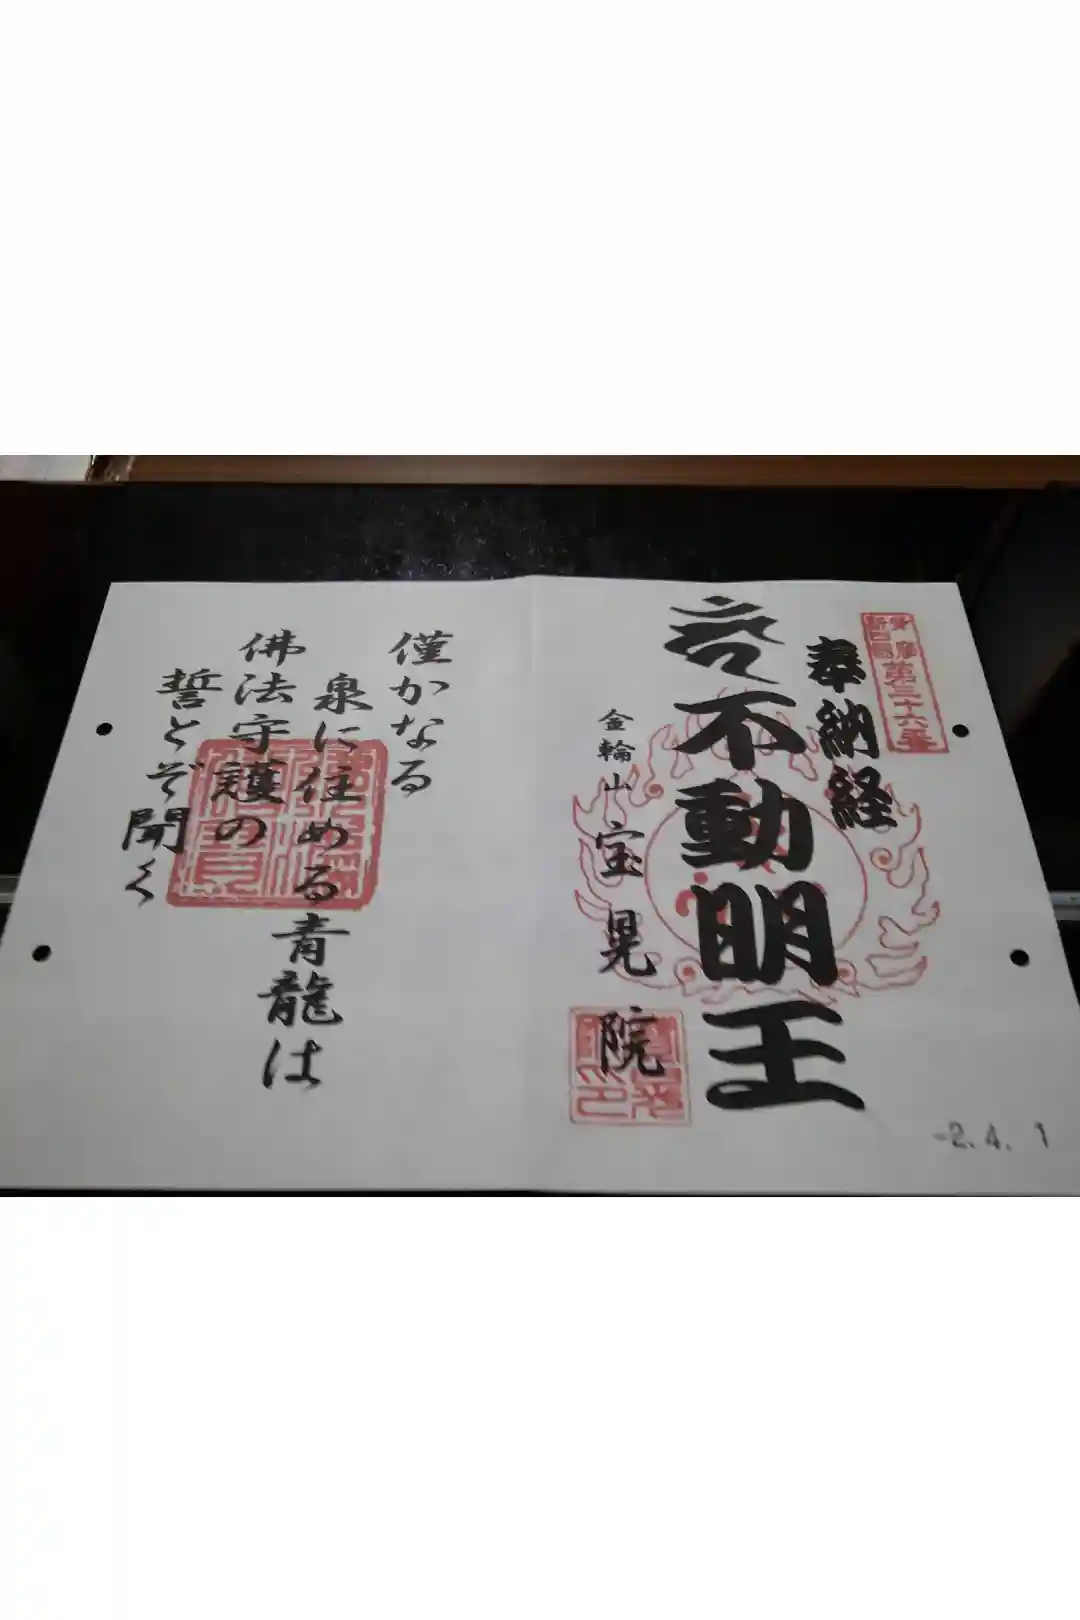 第三十六番
奉納経
不動明王
金輪山 宝晃院
-2.4.1
僅かなる
泉に住める青龍は
佛法守護の
誓とぞ聞く